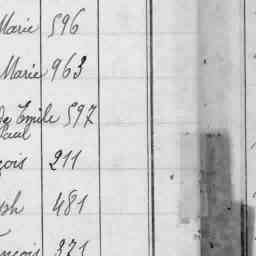 Marie 596
Marie 963
de Emile 597
Paul
çois 211
ph 481
ançois 371